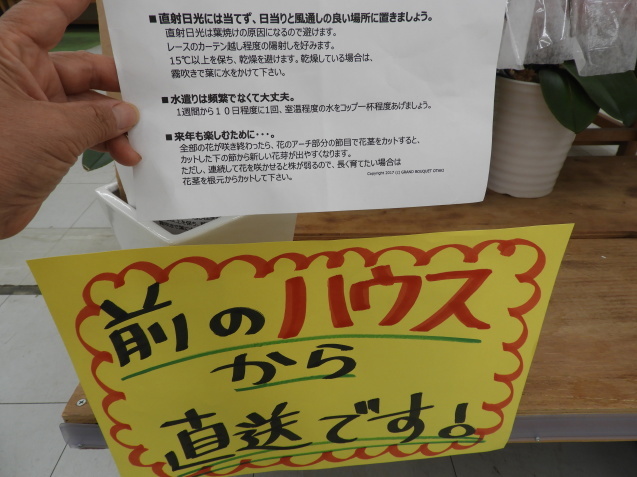 ■直射日光には当てず、日当りと風通しの良い場所に置きましょう。
直射日光は葉焼けの原因になるので避けます。
レースのカーテン越し程度の陽射しを好みます。
15℃以上を保ち、乾燥を避けます。乾燥している場合は、
霧吹きで葉に水をかけて下さい。
■水遣りは頻繁でなくて大丈夫。
1週間から10日程度に1回、室温程度の水をコップ一杯程度あげましょう。
■来年も楽しむために・・・。
全部の花が咲き終わったら、花のアーチ部分の節目で花茎をカットすると、
カットした下の節から新しい花芽が出やすくなります。
ただし、連続して花を咲かせると株が弱るので、長く育てたい場合は
花茎を根元からカットして下さい。
Copyright 2017 (c) GRAND BOUQUET OTARU
前のハウス
から
直送です!